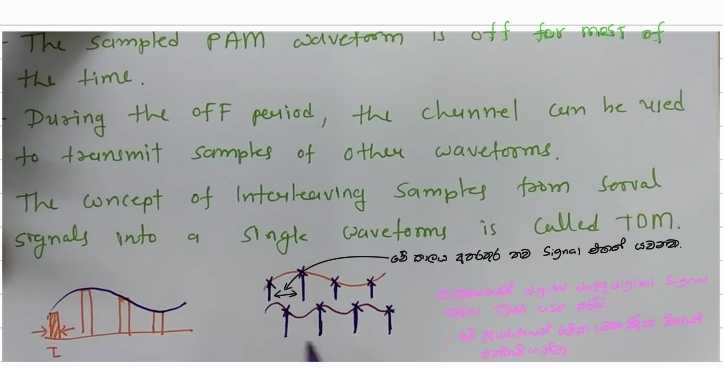 - The sampled PAM waveform is off for most of
the time.
- During the off period, the channel can be used
to transmit samples of other waveforms.
The concept of Interleaving samples from several
signals into a single waveforms is called TDM.
මේ කාලය අතරතුර තව Signal එකක් යවනවා.
digital digital Signal
TDM use කරයි.
τ